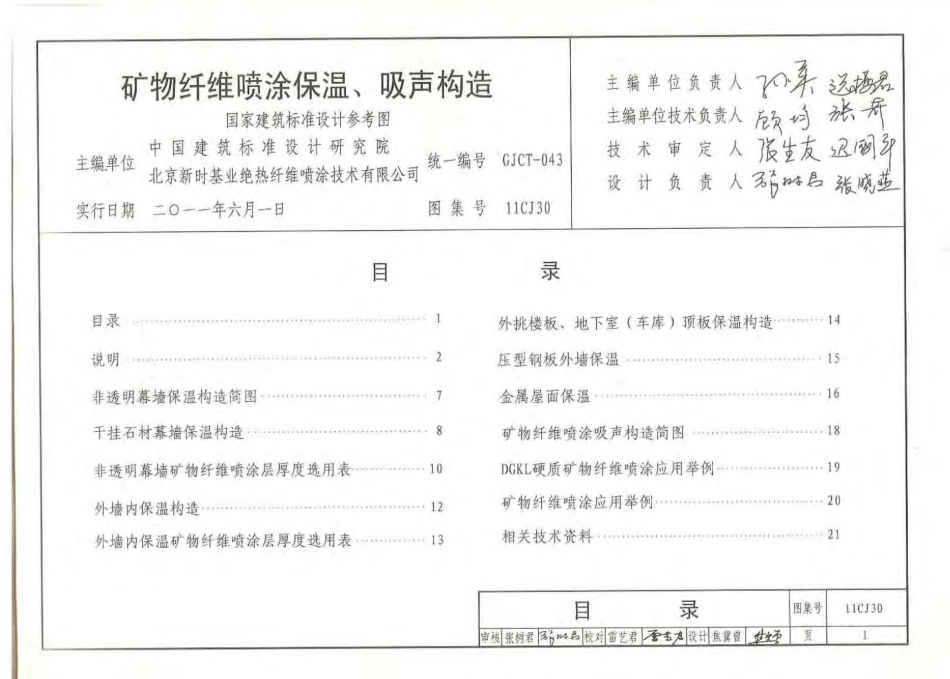 矿物纤维喷涂保温、吸声构造
国家建筑标准设计参考图
主编单位 中国建筑标准设计研究院
北京新时基业绝热纤维喷涂技术有限公司
统一编号 GJCT-043
实行日期 二〇一一年六月一日
图集号 11CJ30
主编单位负责人
主编单位技术负责人 顾均 张昕
技术审定人 张生友
设计负责人 张晓燕
目录
目录 1
说明 2
非透明幕墙保温构造简图 7
干挂石材幕墙保温构造 8
非透明幕墙矿物纤维喷涂层厚度选用表 10
外墙内保温构造 12
外墙内保温矿物纤维喷涂层厚度选用表 13
外挑楼板、地下室(车库)顶板保温构造 14
压型钢板外墙保温 15
金属屋面保温 16
矿物纤维喷涂吸声构造简图 18
DGKL硬质矿物纤维喷涂应用举例 19
矿物纤维喷涂应用举例 20
相关技术资料 21
目录 图集号 11CJ30
审核 张树君 校对 雷艺君 设计 焦冀曾 页 1